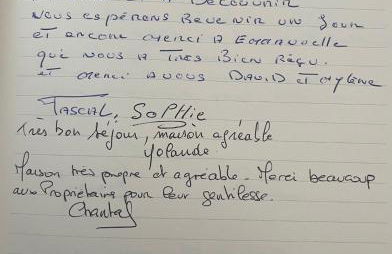 Découvrir
Nous espérons Revenir un Jour
et encore merci à Emmanuelle
qui nous a très Bien Reçu.
et merci à vous DAVID et Mylène
PASCAL, SOPHIE
Très bon séjour, maison agréable
Yolande
Maison très propre et agréable. Merci beaucoup
aux Propriétaires pour leur gentillesse.
Chantal